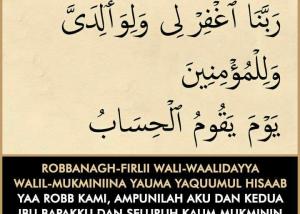 رَبَّنَا ٱغْفِرْ لِى وَلِوَٰلِدَىَّ
وَلِلْمُؤْمِنِينَ
يَوْمَ يَقُومُ ٱلْحِسَابُ
ROBBANAGH-FIRLII WALI-WAALIDAYYA
WALIL-MUKMINIINA YAUMA YAQUUMUL HISAAB
YAA ROBB KAMI, AMPUNILAH AKU DAN KEDUA
IBU BAPAKKU DAN SELURUH KAUM MUKMININ